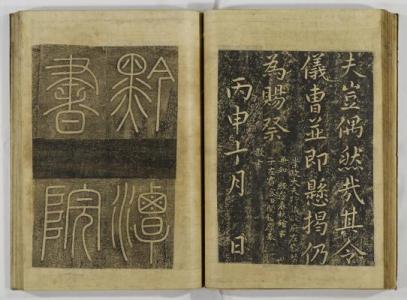 夫豈偶然哉其令
儀曹並即懸揭仍
為賜祭
丙申十月 日
黔潭
書院